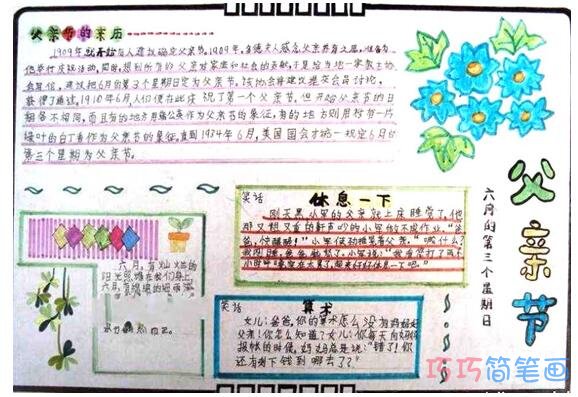 父亲节的来历
1909年就开始有人建议确定父亲节。1909年,多德夫人感念父亲养育之恩,准备为
他举行庆祝活动,同时,想到所有的父亲对家庭和社会的贡献,于是给当地一家教士协
会写信,建议把6月的第3个星期日定为父亲节。该协会将建议提交会员讨论,
获得了通过,1910年6月人们便在此庆祝了第一个父亲节。但开始父亲节的日
期各不相同,而且有的地方用蒲公英作为父亲节的象征,有的地方则用衬有一片
绿叶的白丁香作为父亲节的象征。直到1934年6月,美国国会才统一规定6月的
第三个星期为父亲节。
父亲节
六月的第三个星期日
笑话
休息一下
刚天黑小军的父亲就上床睡觉了,他
那又粗又重的鼾声吵的小军做不成作业。"爸
爸,你醒醒!"小军使劲推晃着父亲。
笑话
算术
女儿:爸爸,你的算术怎么没有妈妈好
父亲!你怎么知道?女儿:你每天向妈妈
报帐的时候,妈妈总是说:"错了!你
还有剩下钱到哪去了?"
六月,有灿烂的
阳光照耀在我们身上,
六月,有
巧巧简笔画